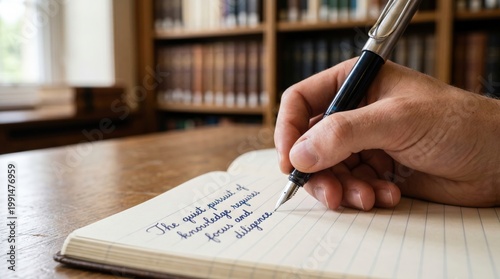 The quiet pursuit of
knowledge requires
focus and
diligence
1991476959